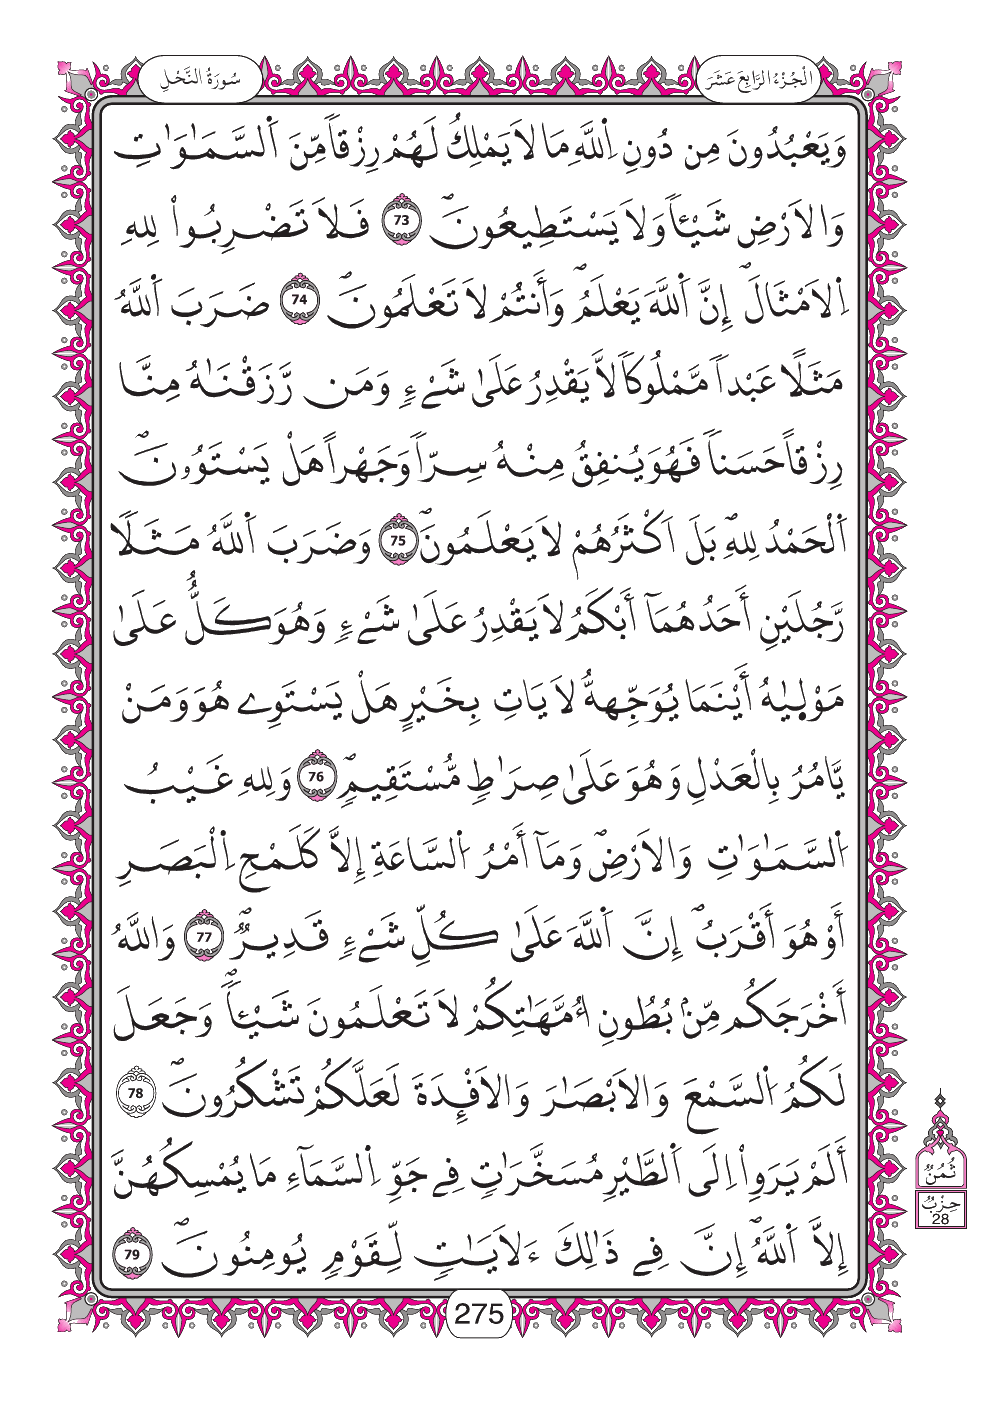 الْجُزْءُ الرَّابِعَ عَشَرَ
سُورَةُ النَّحْلِ
وَيَعْبُدُونَ مِن دُونِ اِ۬للَّهِ مَا لَا يَمْلِكُ لَهُمْ رِزْقاٗ مِّنَ اَ۬لسَّمَٰوَٰتِ
وَالَارْضِ شَيْـٔاٗ وَلَا يَسْتَطِيعُونَۖ 73 فَلَا تَضْرِبُواْ لِلهِ
اِ۬لَامْثَالَۖ إِنَّ اَ۬للَّهَ يَعْلَمُۖ وَأَنتُمْ لَا تَعْلَمُونَۖ 74 ضَرَبَ اَ۬للَّهُ
مَثَلًا عَبْداٗ مَّمْلُوكاٗ لَّا يَقْدِرُ عَلَىٰ شَےْءٖ وَمَن رَّزَقْنَٰهُ مِنَّا
رِزْقاً حَسَناٗ فَهُوَ يُنفِقُ مِنْهُ سِرّاٗ وَجَهْراً هَلْ يَسْتَوُۥنَۖ
اَ۬لْحَمْدُ لِلهِۖ بَلَ اَكْثَرُهُمْ لَا يَعْلَمُونَۖ 75 وَضَرَبَ اَ۬للَّهُ مَثَلًا
رَّجُلَيْنِ أَحَدُهُمَآ أَبْكَمُ لَا يَقْدِرُ عَلَىٰ شَےْءٖ وَهُوَ كَلٌّ عَلَىٰ
مَوْل۪يٰهُ أَيْنَمَا يُوَجِّههُّ لَا يَاتِ بِخَيْرٍ هَلْ يَسْتَوِے هُوَ وَمَنْ
يَّامُرُ بِالْعَدْلِ وَهُوَ عَلَىٰ صِرَٰطٖ مُّسْتَقِيمٖۖ 76 وَلِلهِ غَيْبُ
اُ۬لسَّمَٰوَٰتِ وَالَارْضِۖ وَمَآ أَمْرُ اُ۬لسَّاعَةِ إِلَّا كَلَمْحِ اِ۬لْبَصَرِ
أَوْ هُوَ أَقْرَبُۖ إِنَّ اَ۬للَّهَ عَلَىٰ كُلِّ شَےْءٖ قَدِيرٞۖ 77 وَاللَّهُ
أَخْرَجَكُم مِّنۢ بُطُونِ أُمَّهَٰتِكُمْ لَا تَعْلَمُونَ شَيْـٔاٗۖ وَجَعَلَ
لَكُمُ اُ۬لسَّمْعَ وَالَابْصَٰرَ وَالَافْـِٕدَةَ لَعَلَّكُمْ تَشْكُرُونَۖ 78
أَلَمْ يَرَوِاْ اِلَى اَ۬لطَّيْرِ مُسَخَّرَٰتٖ فِے جَوِّ اِ۬لسَّمَآءِ مَا يُمْسِكُهُنَّ
إِلَّا اَ۬للَّهُۖ إِنَّ فِے ذَٰلِكَ ءَلَايَٰتٖ لِّقَوْمٖ يُومِنُونَۖ 79
ثُمُنٌ
حِزْبٌ
28
275